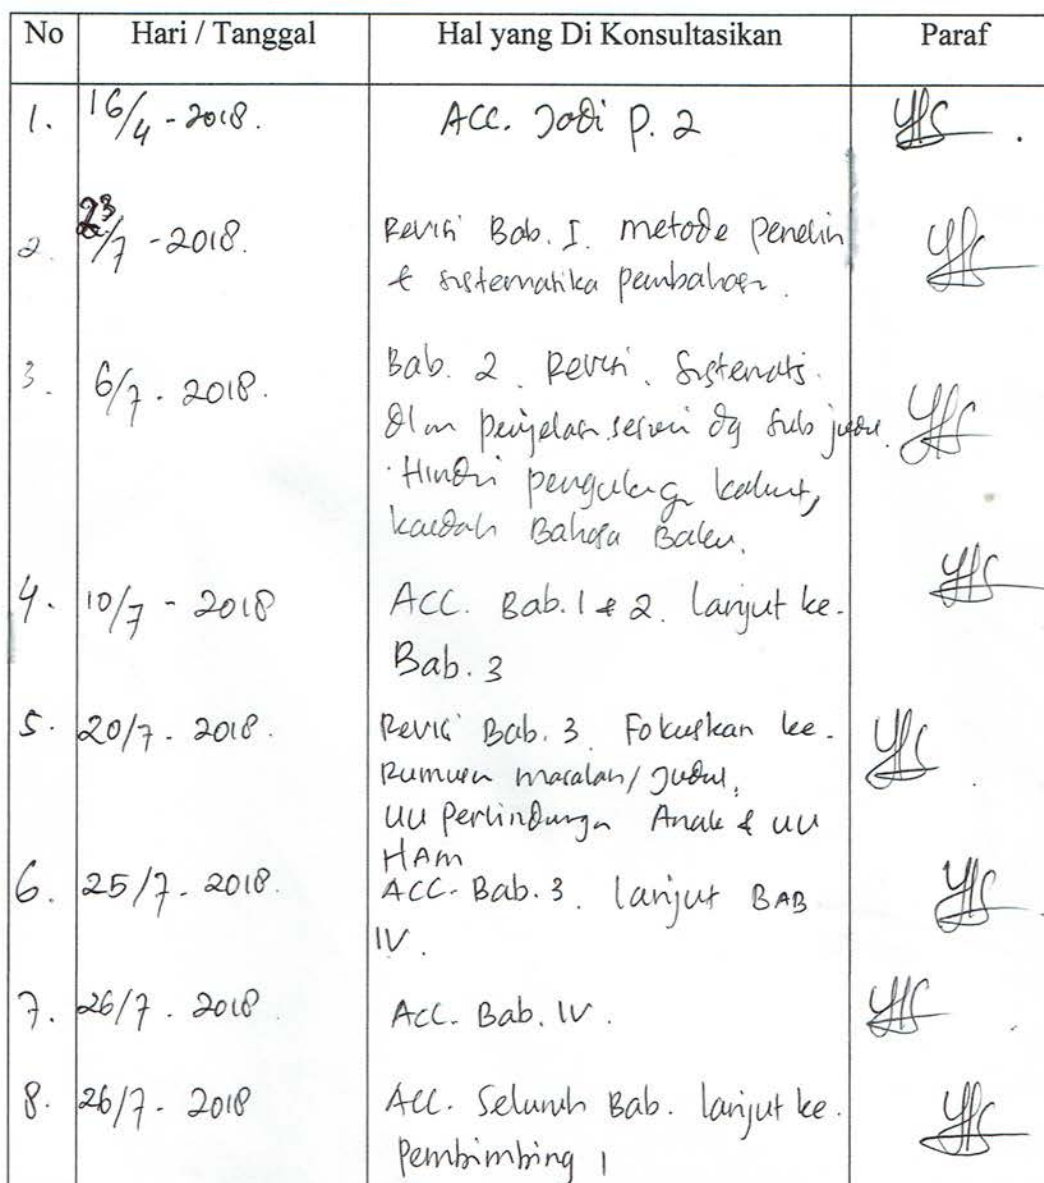 No Hari / Tanggal Hal yang Di Konsultasikan Paraf
1. 16/4 - 2018. ACC. Jadi P. 2
2. 23/7 - 2018. Revisi Bab. I. metode Penelin
& sistematika pembahasan.
3. 6/7 - 2018. Bab. 2. Revisi. Sistematis.
dlm penjelasan sesuai dg sub judul.
Hindri pengulang kalimat,
kaedah Bahasa Baku.
4. 10/7 - 2018 ACC. Bab. 1 & 2. lanjut ke.
Bab. 3
5. 20/7 - 2018. Revisi Bab. 3. Fokuskan ke.
Rumusan masalah/Judul,
UU Perlindungan Anak & UU
HAM
6. 25/7 - 2018. ACC. Bab. 3. lanjut BAB
IV.
7. 26/7 - 2018 Acc. Bab. IV.
8. 26/7 - 2018 Acc. Seluruh Bab. lanjut ke.
Pembimbing 1